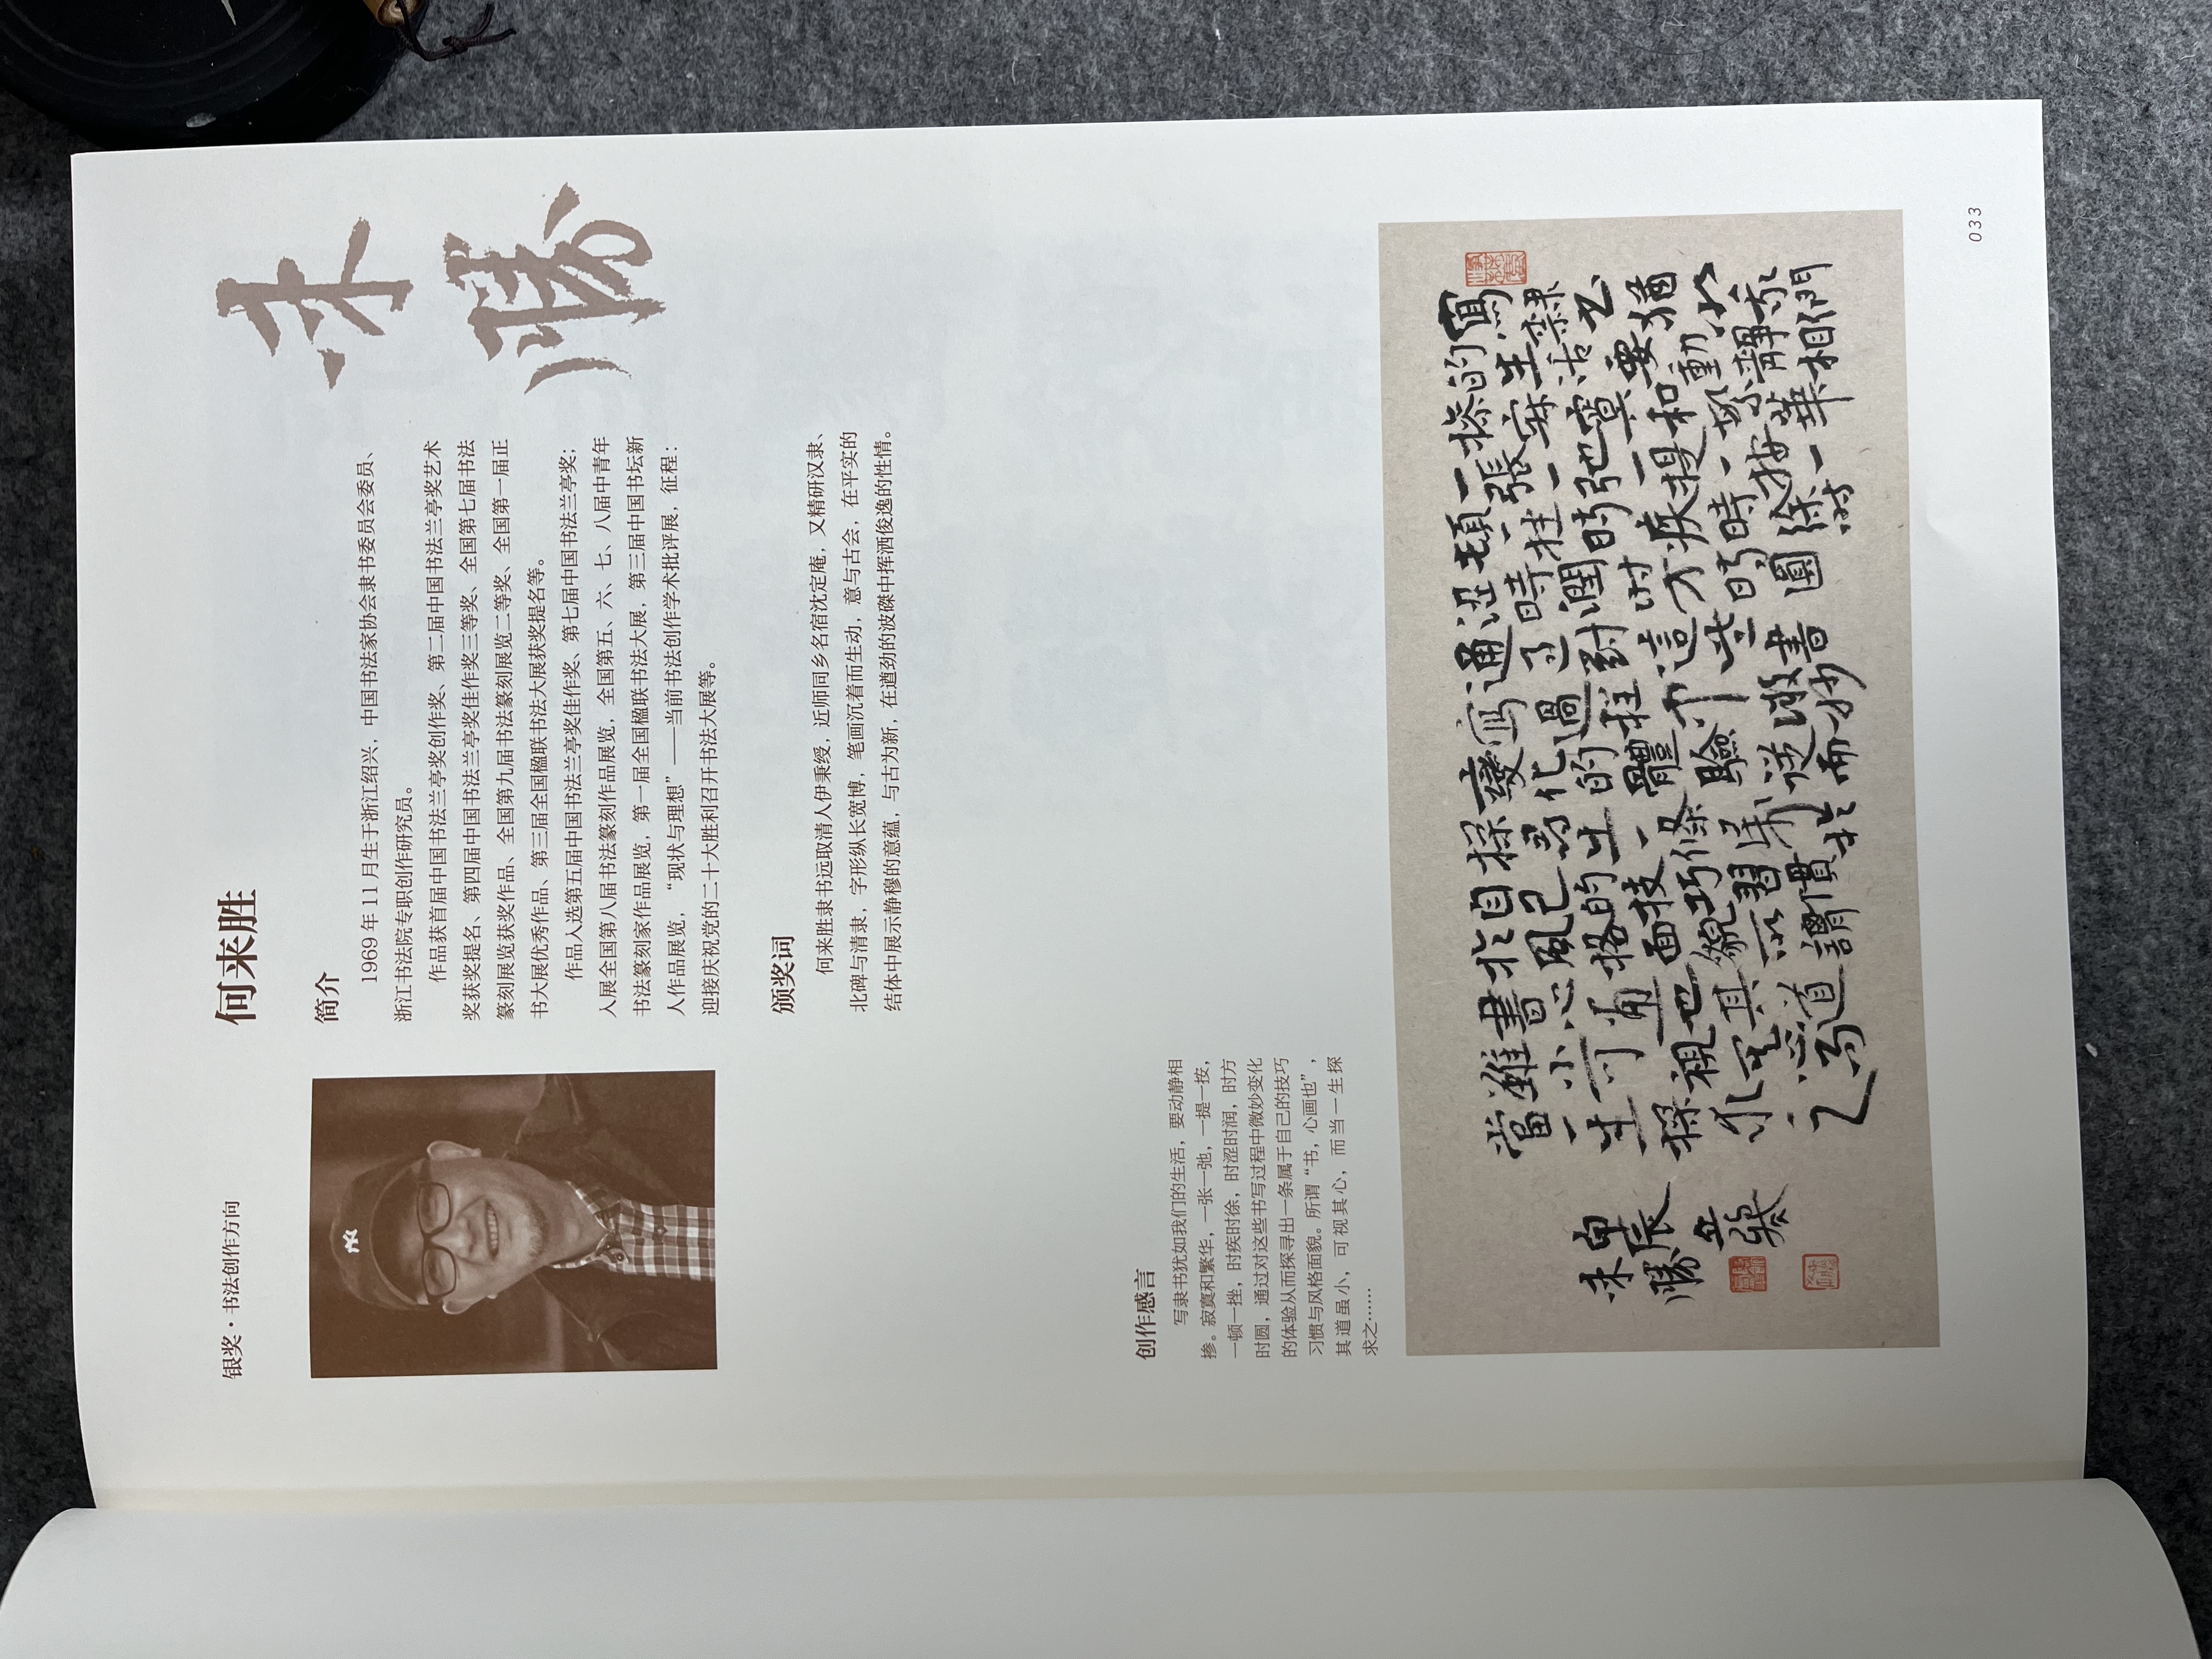 银奖·书法创作方向
何来胜
来
勝
简介
1969 年 11 月生于浙江绍兴，中国书法家协会隶书委员会委员、
浙江书法院专职创作研究员。
作品获首届中国书法兰亭奖创作奖、第二届中国书法兰亭奖艺术
奖获奖提名、第四届中国书法兰亭奖佳作奖三等奖、全国第七届书法
篆刻展览获奖作品、全国第九届书法篆刻展览二等奖、全国第一届正
书大展优秀作品、第三届全国楹联书法大展获奖提名等。
作品入选第五届中国书法兰亭奖佳作奖、第七届中国书法兰亭奖；
入展全国第八届书法篆刻作品展览，全国第五、六、七、八届中青年
书法篆刻家作品展览，第一届全国楹联书法大展，第三届中国书坛新
人作品展览，“现状与理想”——当前书法创作学术批评展，征程：
迎接庆祝党的二十大胜利召开书法大展等。
颁奖词
何来胜隶书远取清人伊秉绶，近师同乡名宿沈定庵，又精研汉隶、
北碑与清隶，字形纵长宽博，笔画沉着而生动，意与古会，在平实的
结体中展示静穆的意蕴，与古为新，在遒劲的波磔中挥洒俊逸的性情。
创作感言
写隶书犹如我们的生活，要动静相
掺。寂寞和繁华，一张一弛，一提一按，
一顿一挫，时疾时徐，时涩时润，时方
时圆，通过对这些书写过程中微妙变化
的体验从而探寻出一条属于自己的技巧
习惯与风格面貌。所谓“书，心画也”，
其道虽小，可视其心，而当一生探
求之……
寫隸书猶
的生活要動靜相
摻寂寞和繁華
一張一弛一提一按一
時疾時徐時
澀時潤時
通過對這些書
變化的體驗
自己的技巧習慣
風格面貌所謂
書心畫也其道
雖小可視其心
當一生探求之
来勝
033